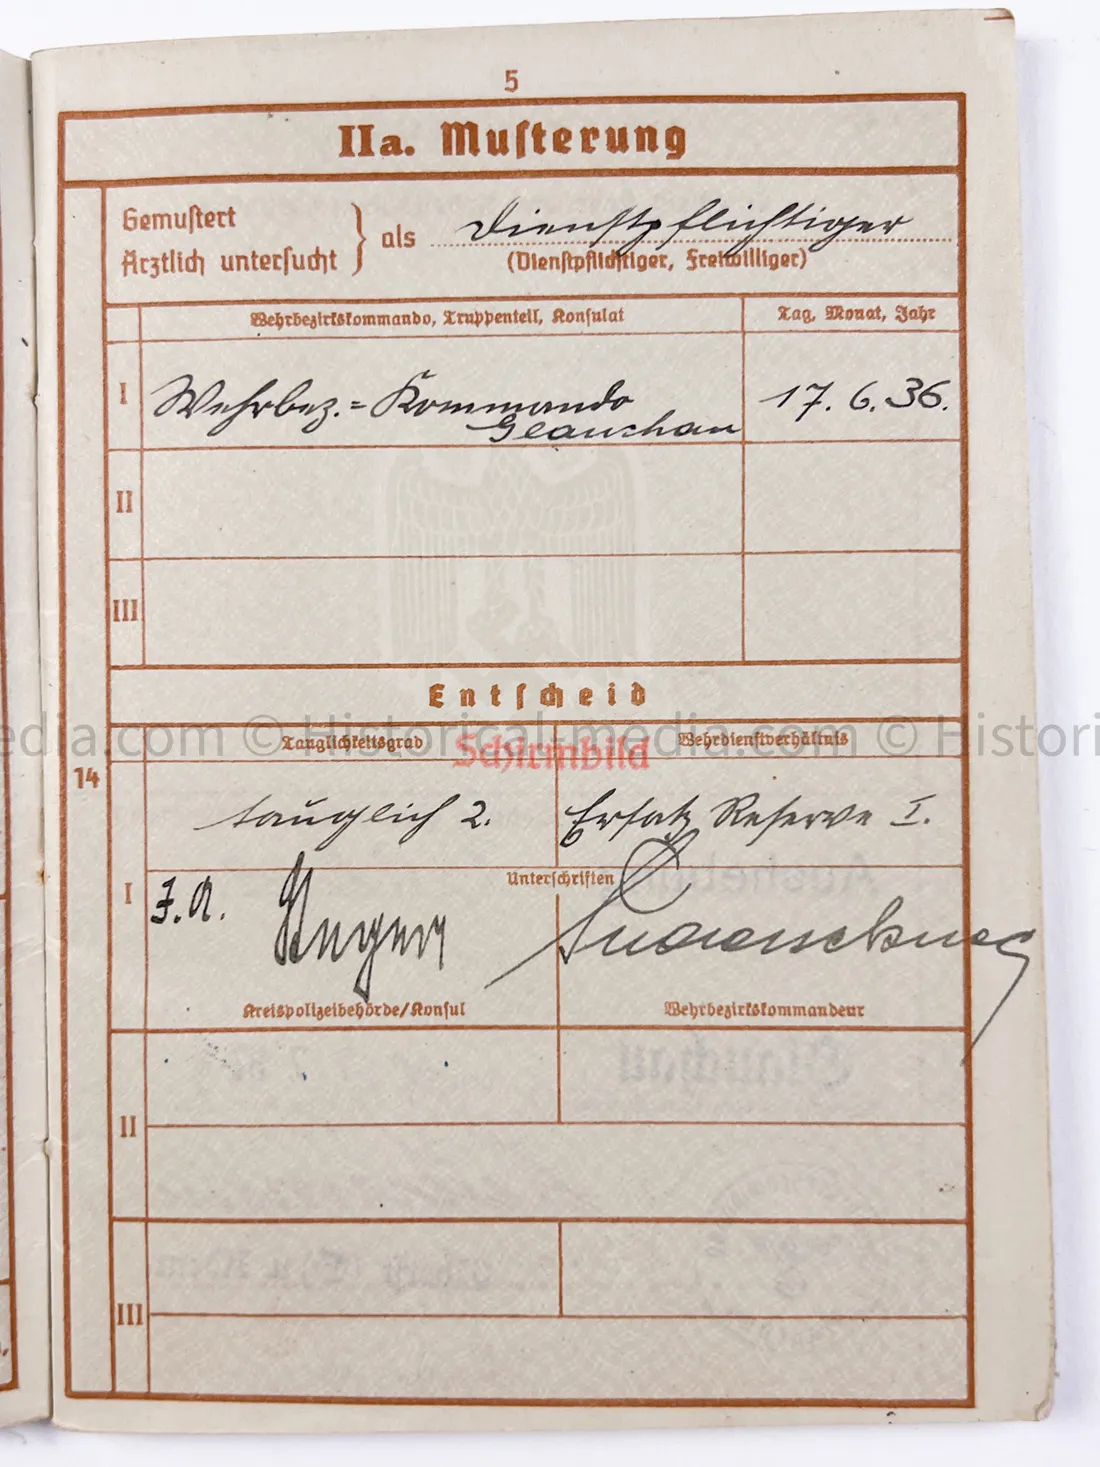 5
IIa. Musterung
Gemustert
Ärztlich untersucht
als Dienstpflichtiger
(Dienstpflichtiger, Freiwilliger)
Wehrbezirkskommando, Truppenteil, Konsulat
Tag, Monat, Jahr
I
Wehrbez.=Kommando
Glauchau
17. 6. 36.
II
III
Entscheid
edia.com © Historical-media.com © Histori
Tauglichkeitsgrad
Schirmbild
Wehrdienstverhältnis
14
tauglich 2.
Ersatz Reserve I.
Unterschriften
I
J.A.
Kreispolizeibehörde/Konsul
Wehrbezirkskommandeur
II
III